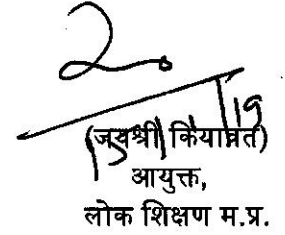 (जयश्री कियावत)
आयुक्त,
लोक शिक्षण म.प्र.